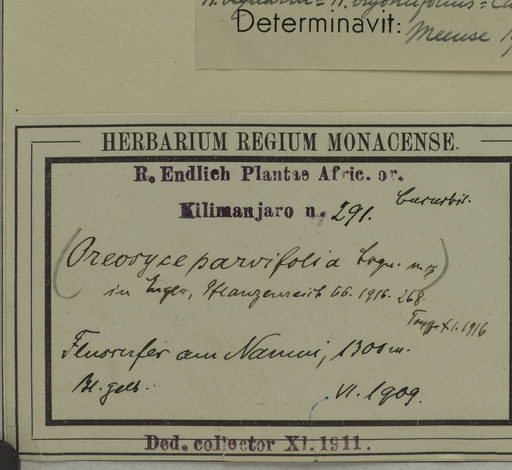 Determinavit: Meeuse
HERBARIUM REGIUM MONACENSE.
R. Endlich Plantae Afric. or.
Kilimanjaro n. 291. Cucurbit.
(Oreosyce parvifolia Cogn. n. sp)
in Engler, Pflanzenreich 66. 1916. 268.
XI. 1916
Flussufer am Namui, 1300 m.
Bl. gelb. VI. 1909.
Ded. collector XI. 1911.